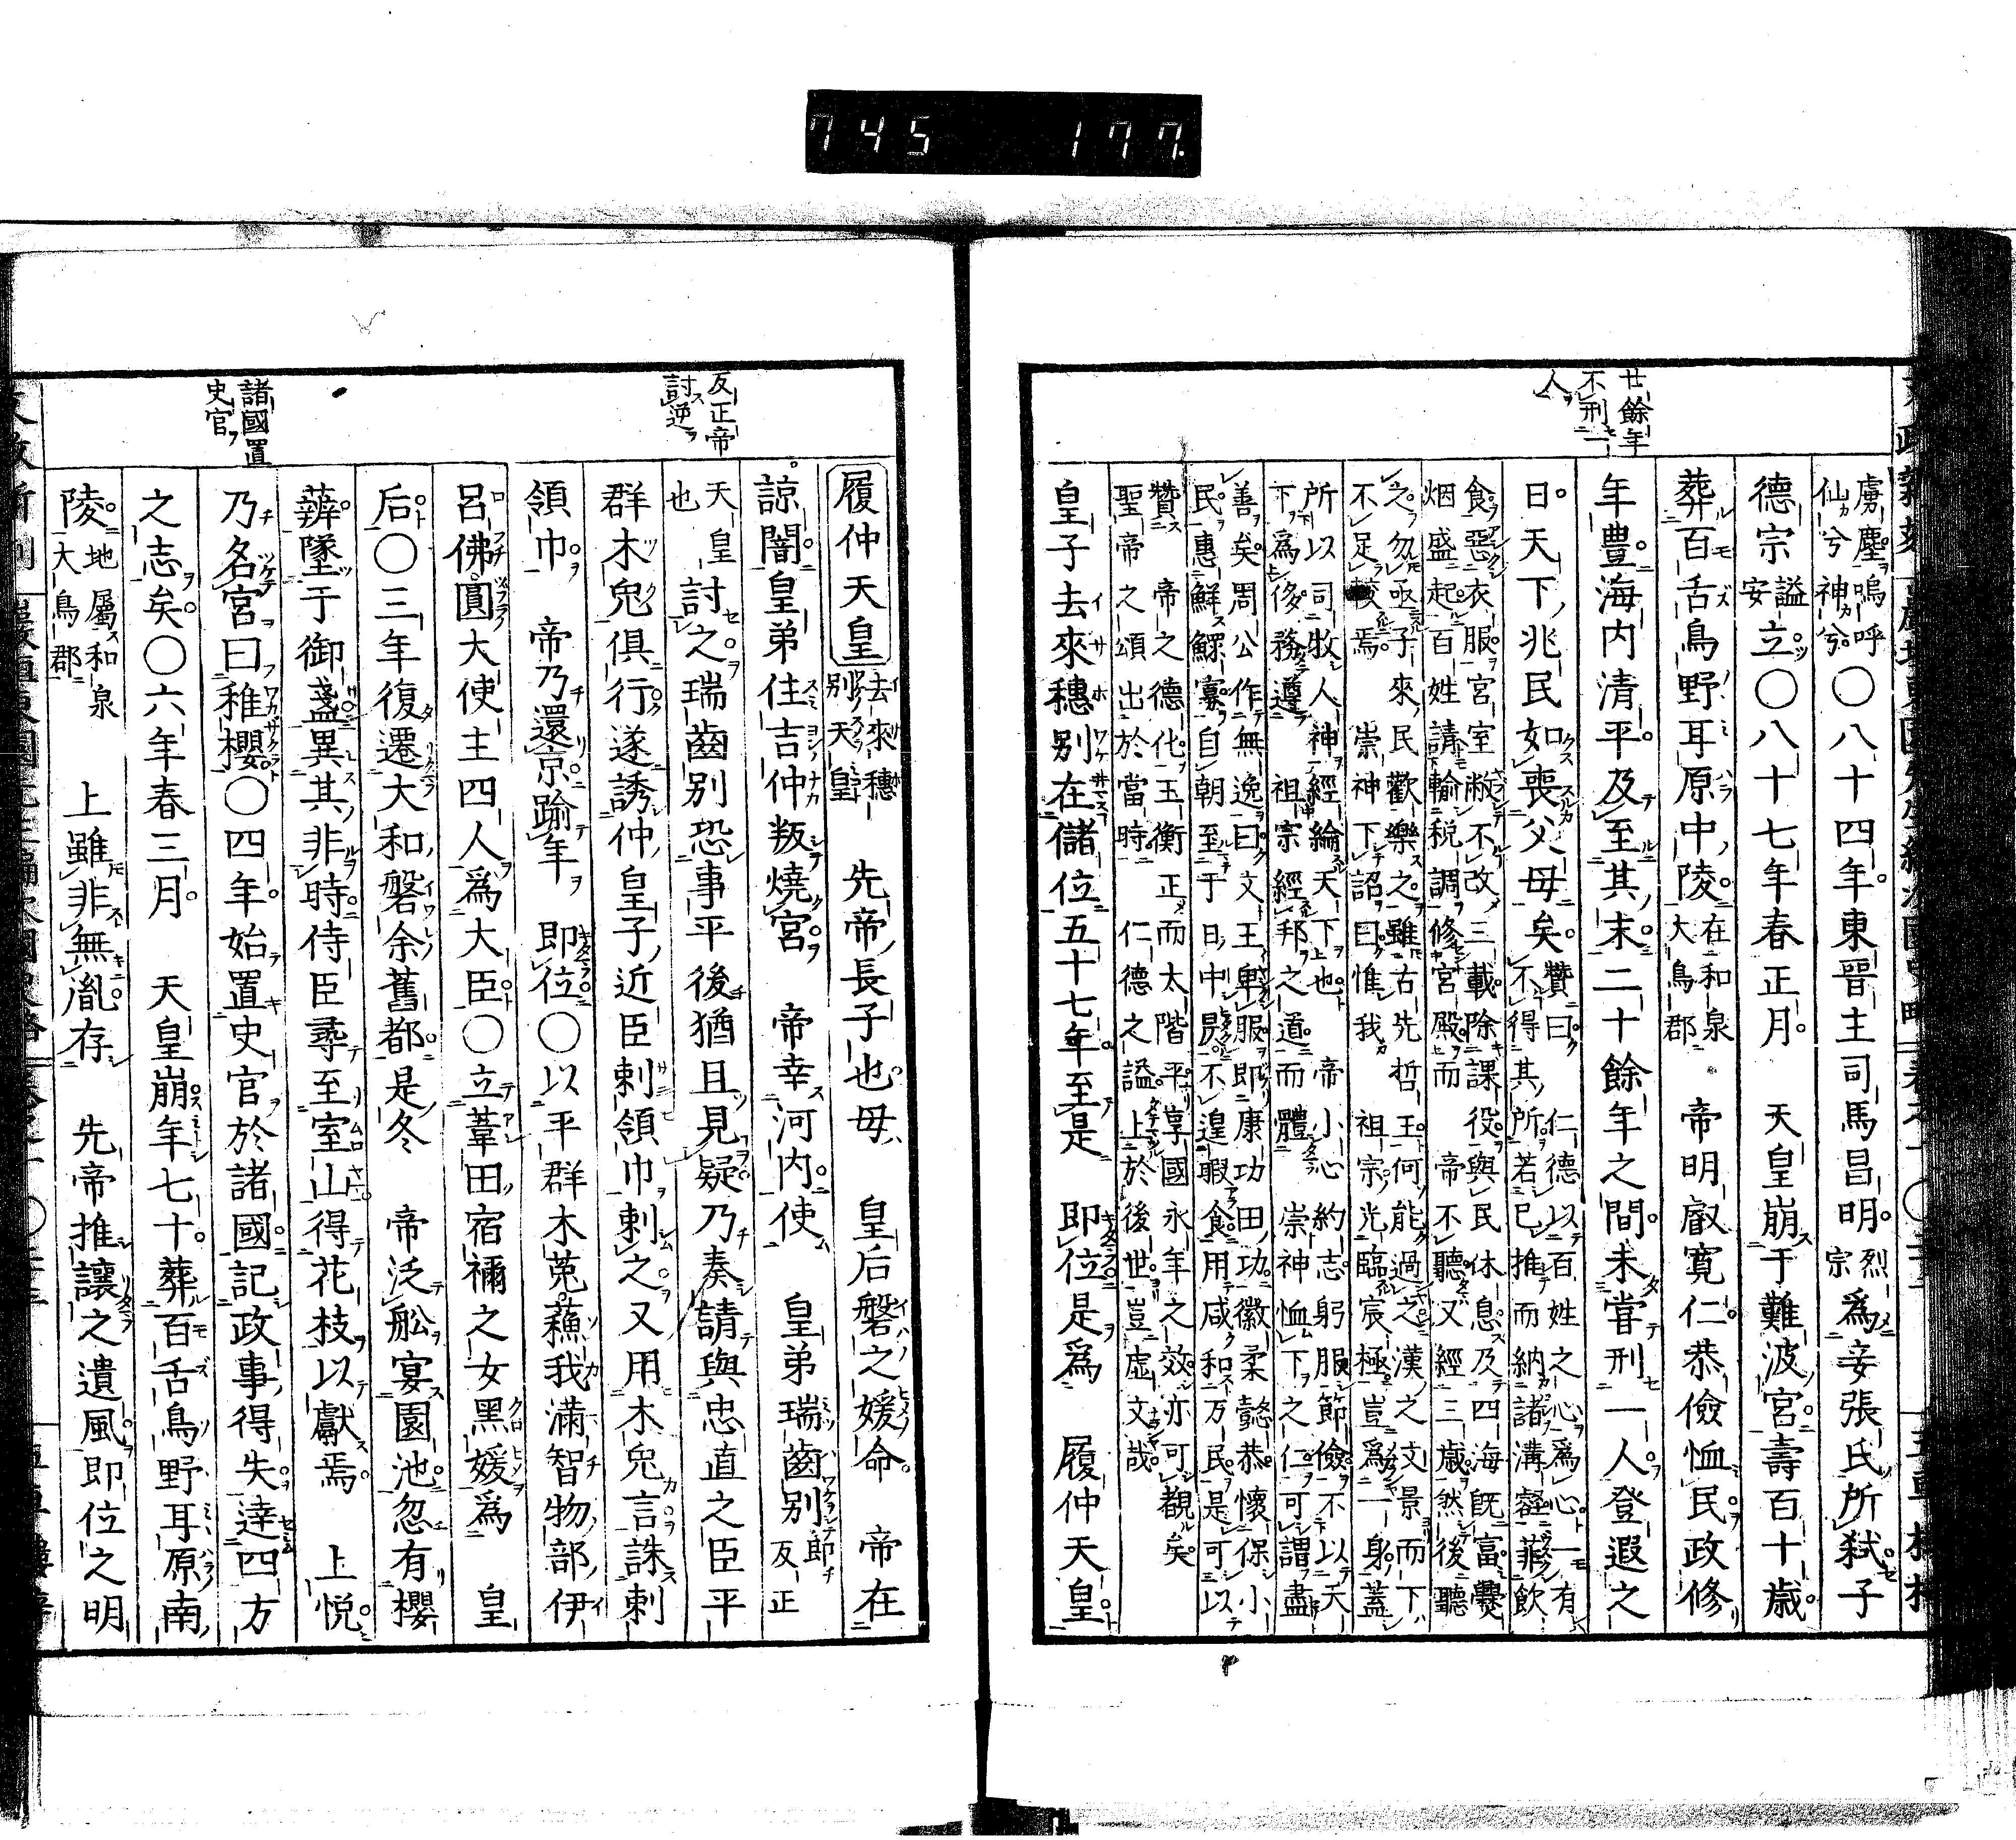 745 177.
廿餘年
不刑一
人
虜塵嗚呼
仙兮神兮〇八十四年東晉主司馬昌明烈宗爲妾張氏所弑子
德宗謚安立〇八十七年春正月 天皇崩于難波宮壽百十歲
葬百舌鳥野耳原中陵在和泉大鳥郡 帝明叡寬仁恭儉恤民政修
年豊海內清平及至其末二十餘年之間未甞刑一人登遐之
日天下兆民如喪父母矣贊曰仁德以百姓之心爲心一有
不得其所若已推而納諸溝壑菲飲
食惡衣服宮室敝不改三載除課役與民休息及四海既富爨
烟盛起百姓請輸税調修宮殿而 帝不聽又經三歲然後聽
之忽亟子來民歡樂之雖古先哲王何能過之漢之文景而下
不足較焉 崇神下詔曰惟我 祖宗光臨宸極豈爲一身蓋
所以司牧人神經綸天下也 帝小心約志躬服節儉不以天
下爲侈務遵 祖宗經邦之道而體 崇神恤下之仁可謂盡
善矣周公作無逸曰文王卑服即康功田功徽柔懿恭懷保小
民惠鮮鰥寡自朝至于日中昃不遑暇食用咸和万民是可以
贊 帝之德化玉衡正而太階平享國永年之效亦可觀矣
聖帝之頌出於當時 仁德之謚上於後世豈虛文哉
皇子去來穗別在儲位五十七年至是 即位是爲 履仲天皇
反正帝
討逆
諸國置
史官
履仲天皇去來穗別天皇 先帝長子也母 皇后磐之媛命 帝在
諒闇皇弟住吉仲叛燒宮 帝幸河内使 皇弟瑞齒別節反正
天皇也討之瑞齒別恐事平後猶且見疑乃奏請與忠直之臣平
群木兎俱行遂誘仲皇子近臣刺領巾刺之又用木兎言誅刺
領巾 帝乃還京踰年 即位〇以平群木菟蘓我滿智物部伊
呂佛圓大使主四人爲大臣〇立葦田宿禰之女黑媛爲 皇
后〇三年復遷大和磐余舊都是冬 帝泛舩宴園池忽有櫻
蘤墜于御盞異其非時侍臣尋至室山得花枝以獻焉 上悦
乃名宮曰稚櫻〇四年始置史官於諸國記政事得失達四方
之志矣〇六年春三月 天皇崩年七十葬百舌鳥野耳原南
陵地屬和泉大鳥郡 上雖非無胤存 先帝推讓之遺風即位之明